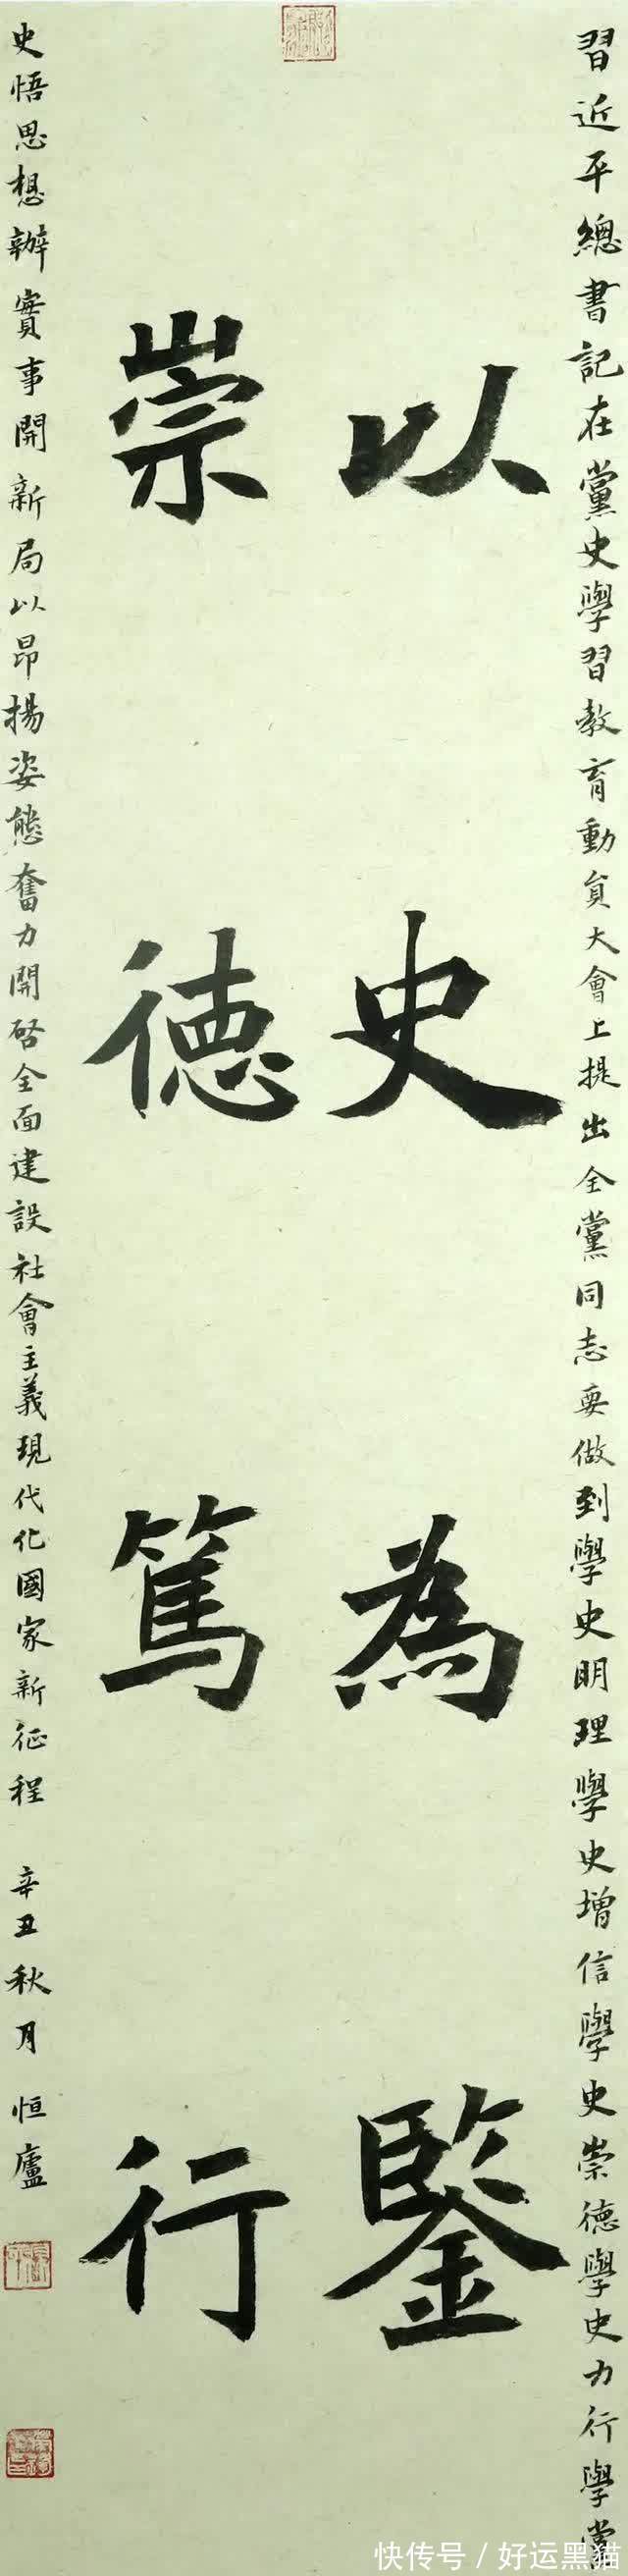 習近平總書記在黨史學習教育動員大會上提出全黨同志要做到學史明理學史增信學史崇德學史力行學黨
以史為鑒
崇德篤行
史悟思想辦實事開新局以昂揚姿態奮力開啓全面建設社會主義現代化國家新征程 辛丑秋月 恒廬
快传号 / 好运黑猫